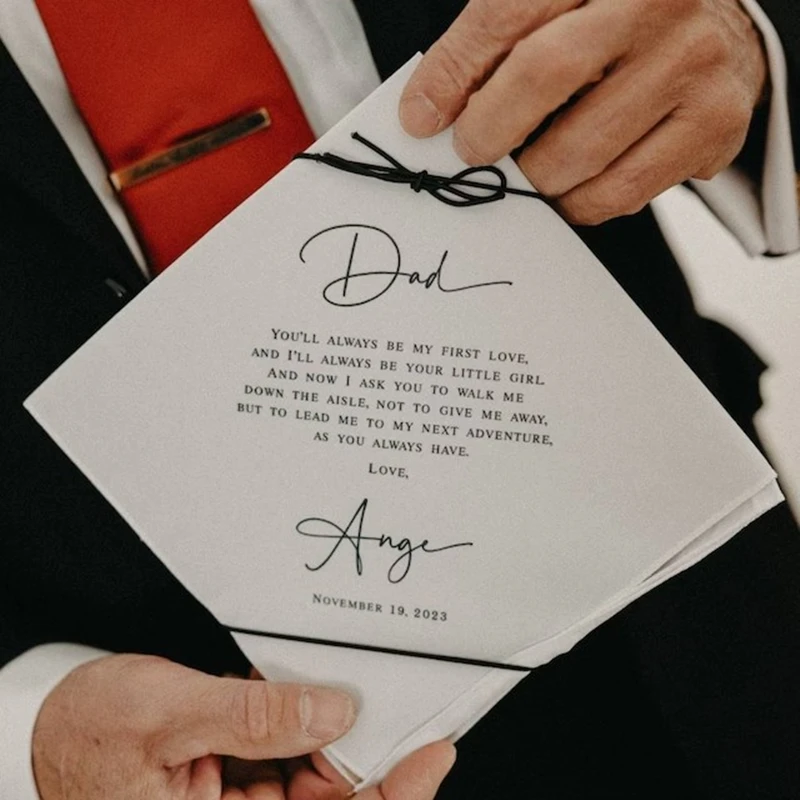 Dad
You'll always be my first love,
and I'll always be your little girl.
And now I ask you to walk me
down the aisle, not to give me away,
but to lead me to my next adventure,
as you always have.
Love,
Ange
November 19, 2023